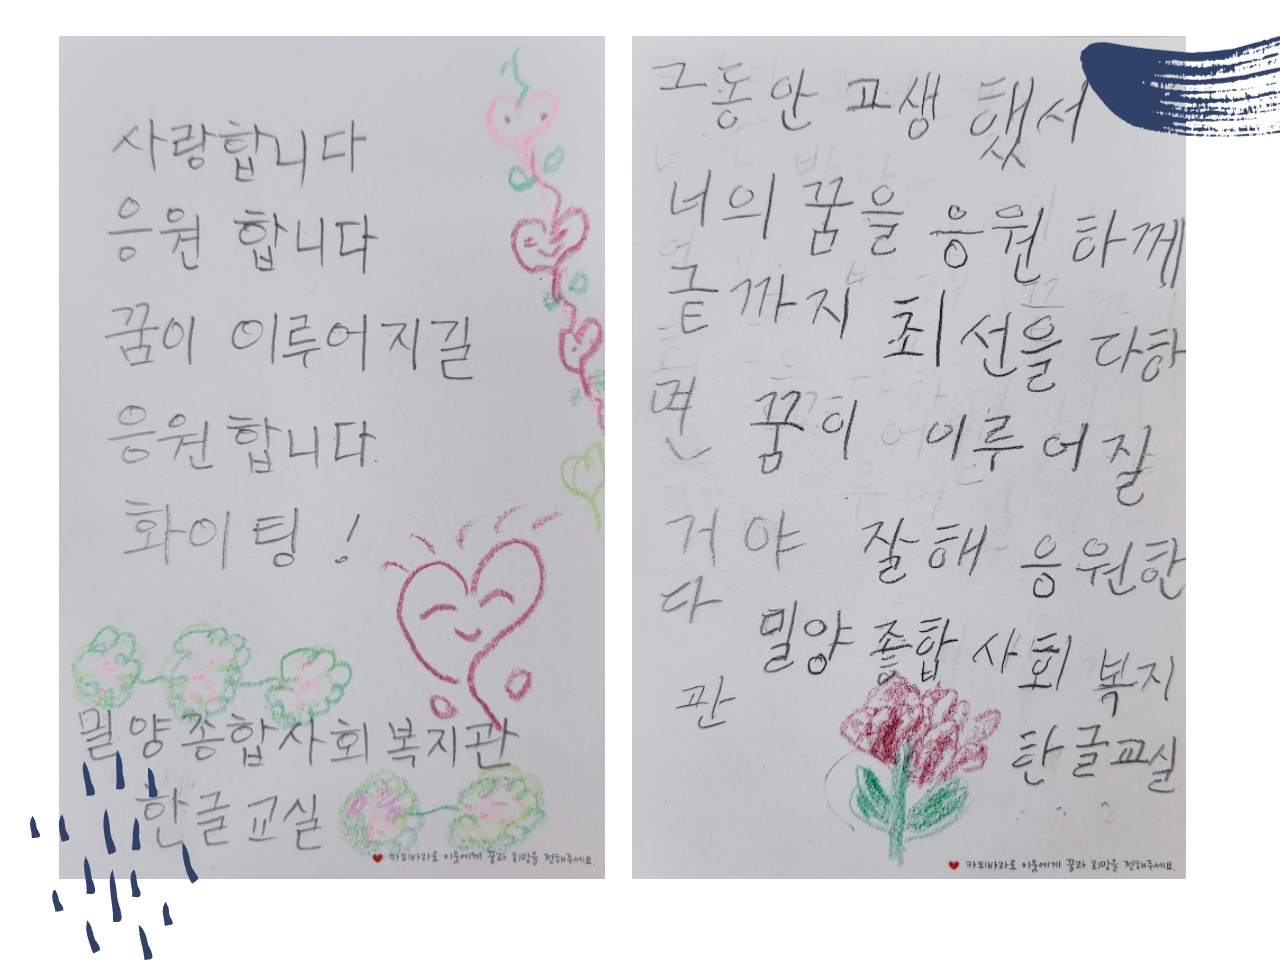 사랑합니다
응원 합니다
꿈이 이루어지길
응원합니다.
화이팅!
밀양종합사회복지관
한글교실
카피바라로 이웃에게 꿈과 희망을 전해주세요.
그동안 고생 했서
너의 꿈을 응원 하께
끝까지 최선을 다하
면 꿈이 이루어질
거야 잘해 응원한
다
밀양 종합 사회 복지
관
한글교실
카피바라로 이웃에게 꿈과 희망을 전해주세요.